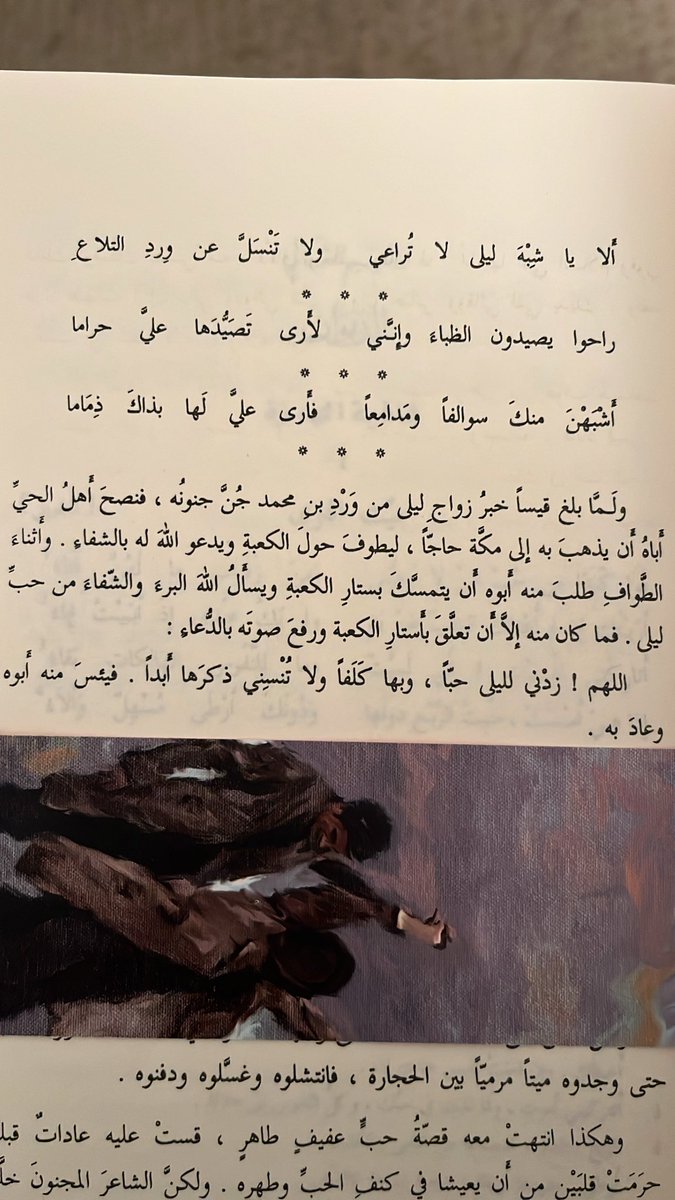 أَلا يا شِبْهَ ليلى لا تُراعي ولا تَنْسَلَّ عن وِردِ التلاعِ
راحوا يصيدون الظباءَ وإِنَّني لأَرى تَصَيُّدَها عليَّ حراما
أَشْبَهْنَ منكَ سوالفاً ومَدامِعاً فأَرى عليَّ لَها بذاكَ ذِمَاما
ولَـمَّا بلغ قيساً خبرُ زواجِ ليلى من وَرْدِ بنِ محمد جُنَّ جنونُه ، فنصحَ أَهلُ الحيِّ
أَباهُ أَن يذهبَ به إلى مكَّة حاجّاً ، ليطوفَ حولَ الكعبةِ ويدعو اللهَ له بالشفاءِ . وأَثناءَ
الطَّوافِ طلبَ منه أَبوه أَن يتمسَّكَ بستارِ الكعبةِ ويسأَلُ اللهَ البرءَ والشّفاءَ من حبِّ
ليلى . فما كان منه إلاَّ أَن تعلَّقَ بأَستارِ الكعبة ورفعَ صوتَه بالدُّعاءِ :
اللهم ! زدْني لليلى حبّاً ، وبها كَلَفاً ولا تُنْسِني ذكرَها أَبداً . فيئسَ منه أَبوه
وعادَ به .
حتى وجدوه ميتاً مرميّاً بين الحجارة ، فانتشلوه وغسَّلوه ودفنوه .
وهكذا انتهتْ معه قصّةُ حبٍّ عفيفٍ طاهرٍ ، قستْ عليه عاداتٌ
حرَمَتْ قلبَيْن من أَن يعيشا في كنفِ الحبِّ وطهره . ولكنَّ الشاعرَ المجنونَ